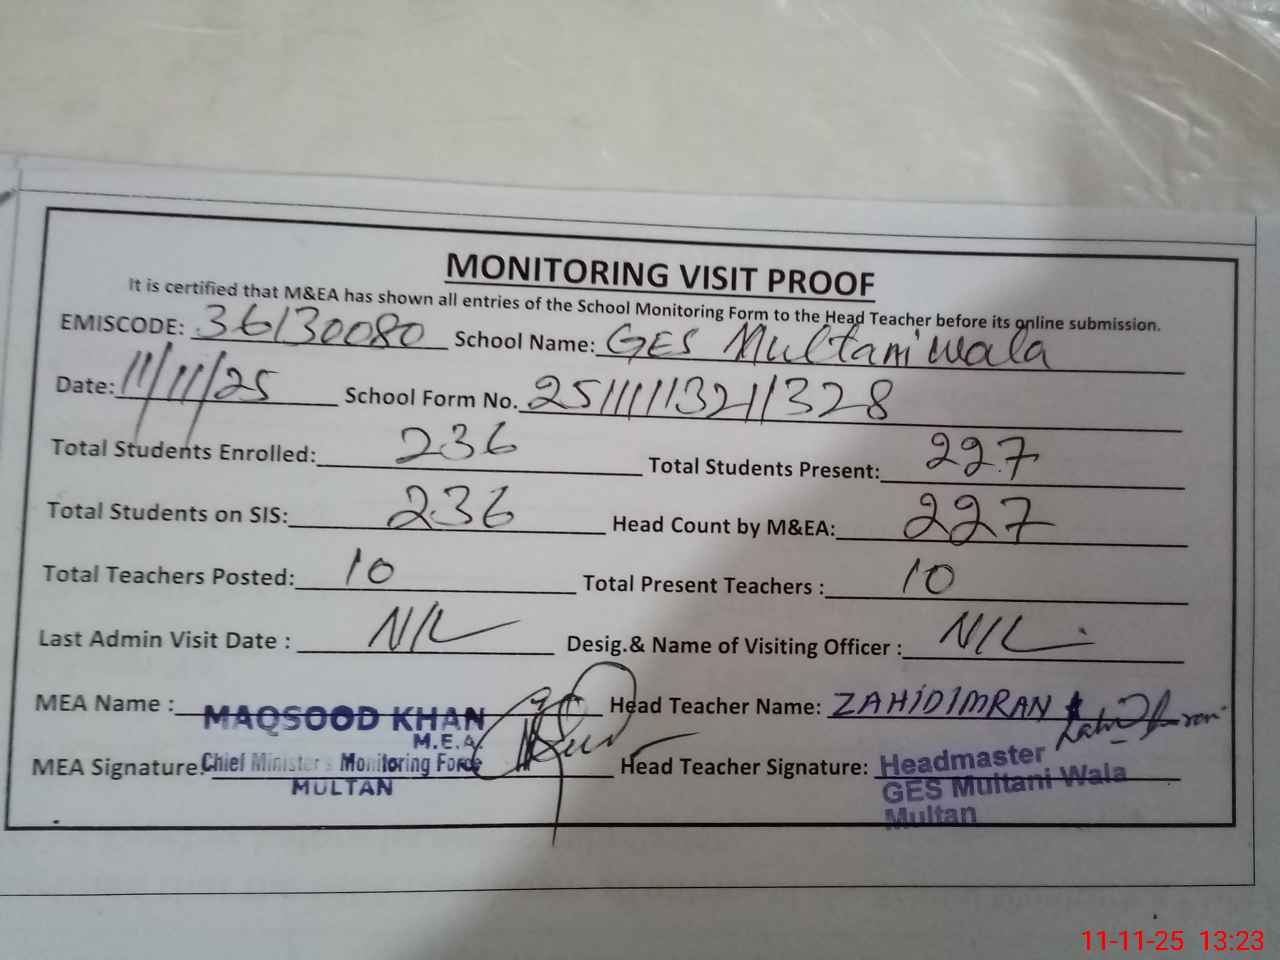 MONITORING VISIT PROOF
It is certified that M&EA has shown all entries of the School Monitoring Form to the Head Teacher before its online submission.
EMISCODE: 36130080 School Name: GES Multani wala
Date: 11/11/25 School Form No. 25111113211328
Total Students Enrolled: 236 Total Students Present: 227
Total Students on SIS: 236 Head Count by M&EA: 227
Total Teachers Posted: 10 Total Present Teachers : 10
Last Admin Visit Date : NIL Desig.& Name of Visiting Officer : NIL
MEA Name : MAQSOOD KHAN Head Teacher Name: ZAHID IMRAN
M.E.A.
MEA Signature: Chief Minister's Monitoring Force Head Teacher Signature: Headmaster
MULTAN GES Multani Wala
Multan
11-11-25 13:23